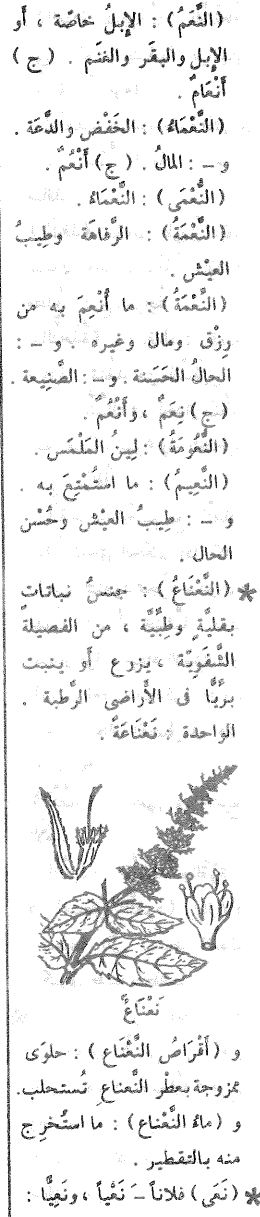 (النَّعَمُ) : الإِبلُ خاصّة ، أَو
الإِبل والبقَر والغنَم . ( ج )
أَنْعَامٌ .
(النَّعْمَاءُ) : الخَفْض والدَّعَة .
و ــ : المالُ . (ج) أَنْعُمٌ .
(النُّعْمَى) : النَّعْمَاءُ .
(النَّعْمَةُ) : الرَّفاهَة وطِيبُ
العيْش .
(النِّعْمَةُ) : ما أُنْعِمَ به من
رِزْق ومال وغيره . و ــ :
الحالُ الحَسَنة . و ــ : الصَّنِيعة .
(ج) نِعَمٌ ، وأَنْعُمٌ .
(النُّعُومَةُ) : لِينُ المَلْمَس .
(النَّعِيمُ) : ما استُمْتِعَ به .
و ــ : طِيبُ العيْش وحُسْن
الحال .
* (النَّعْنَاعُ) : جنسُ نباتاتٍ
بقليَّةٍ وطِبِّيَّة ، من الفصيلة
الشَّفَوِيّة ، يزرع أَو ينبت
برّيًّا فى الأَراضى الرَّطبة .
الواحدة : نَعْنَاعَةٌ .
نَعْنَاعٌ
و (أَقْرَاصُ النَّعْنَاعِ) : حلوَى
ممزوجة بعطْر النَّعناعِ تُستحلب .
و (ماءُ النَّعْنَاع) : ما استُخرج
منه بالتقطير .
* (نَعَى) فلاناً ــَ نَعْياً ، ونَعِيًّا :